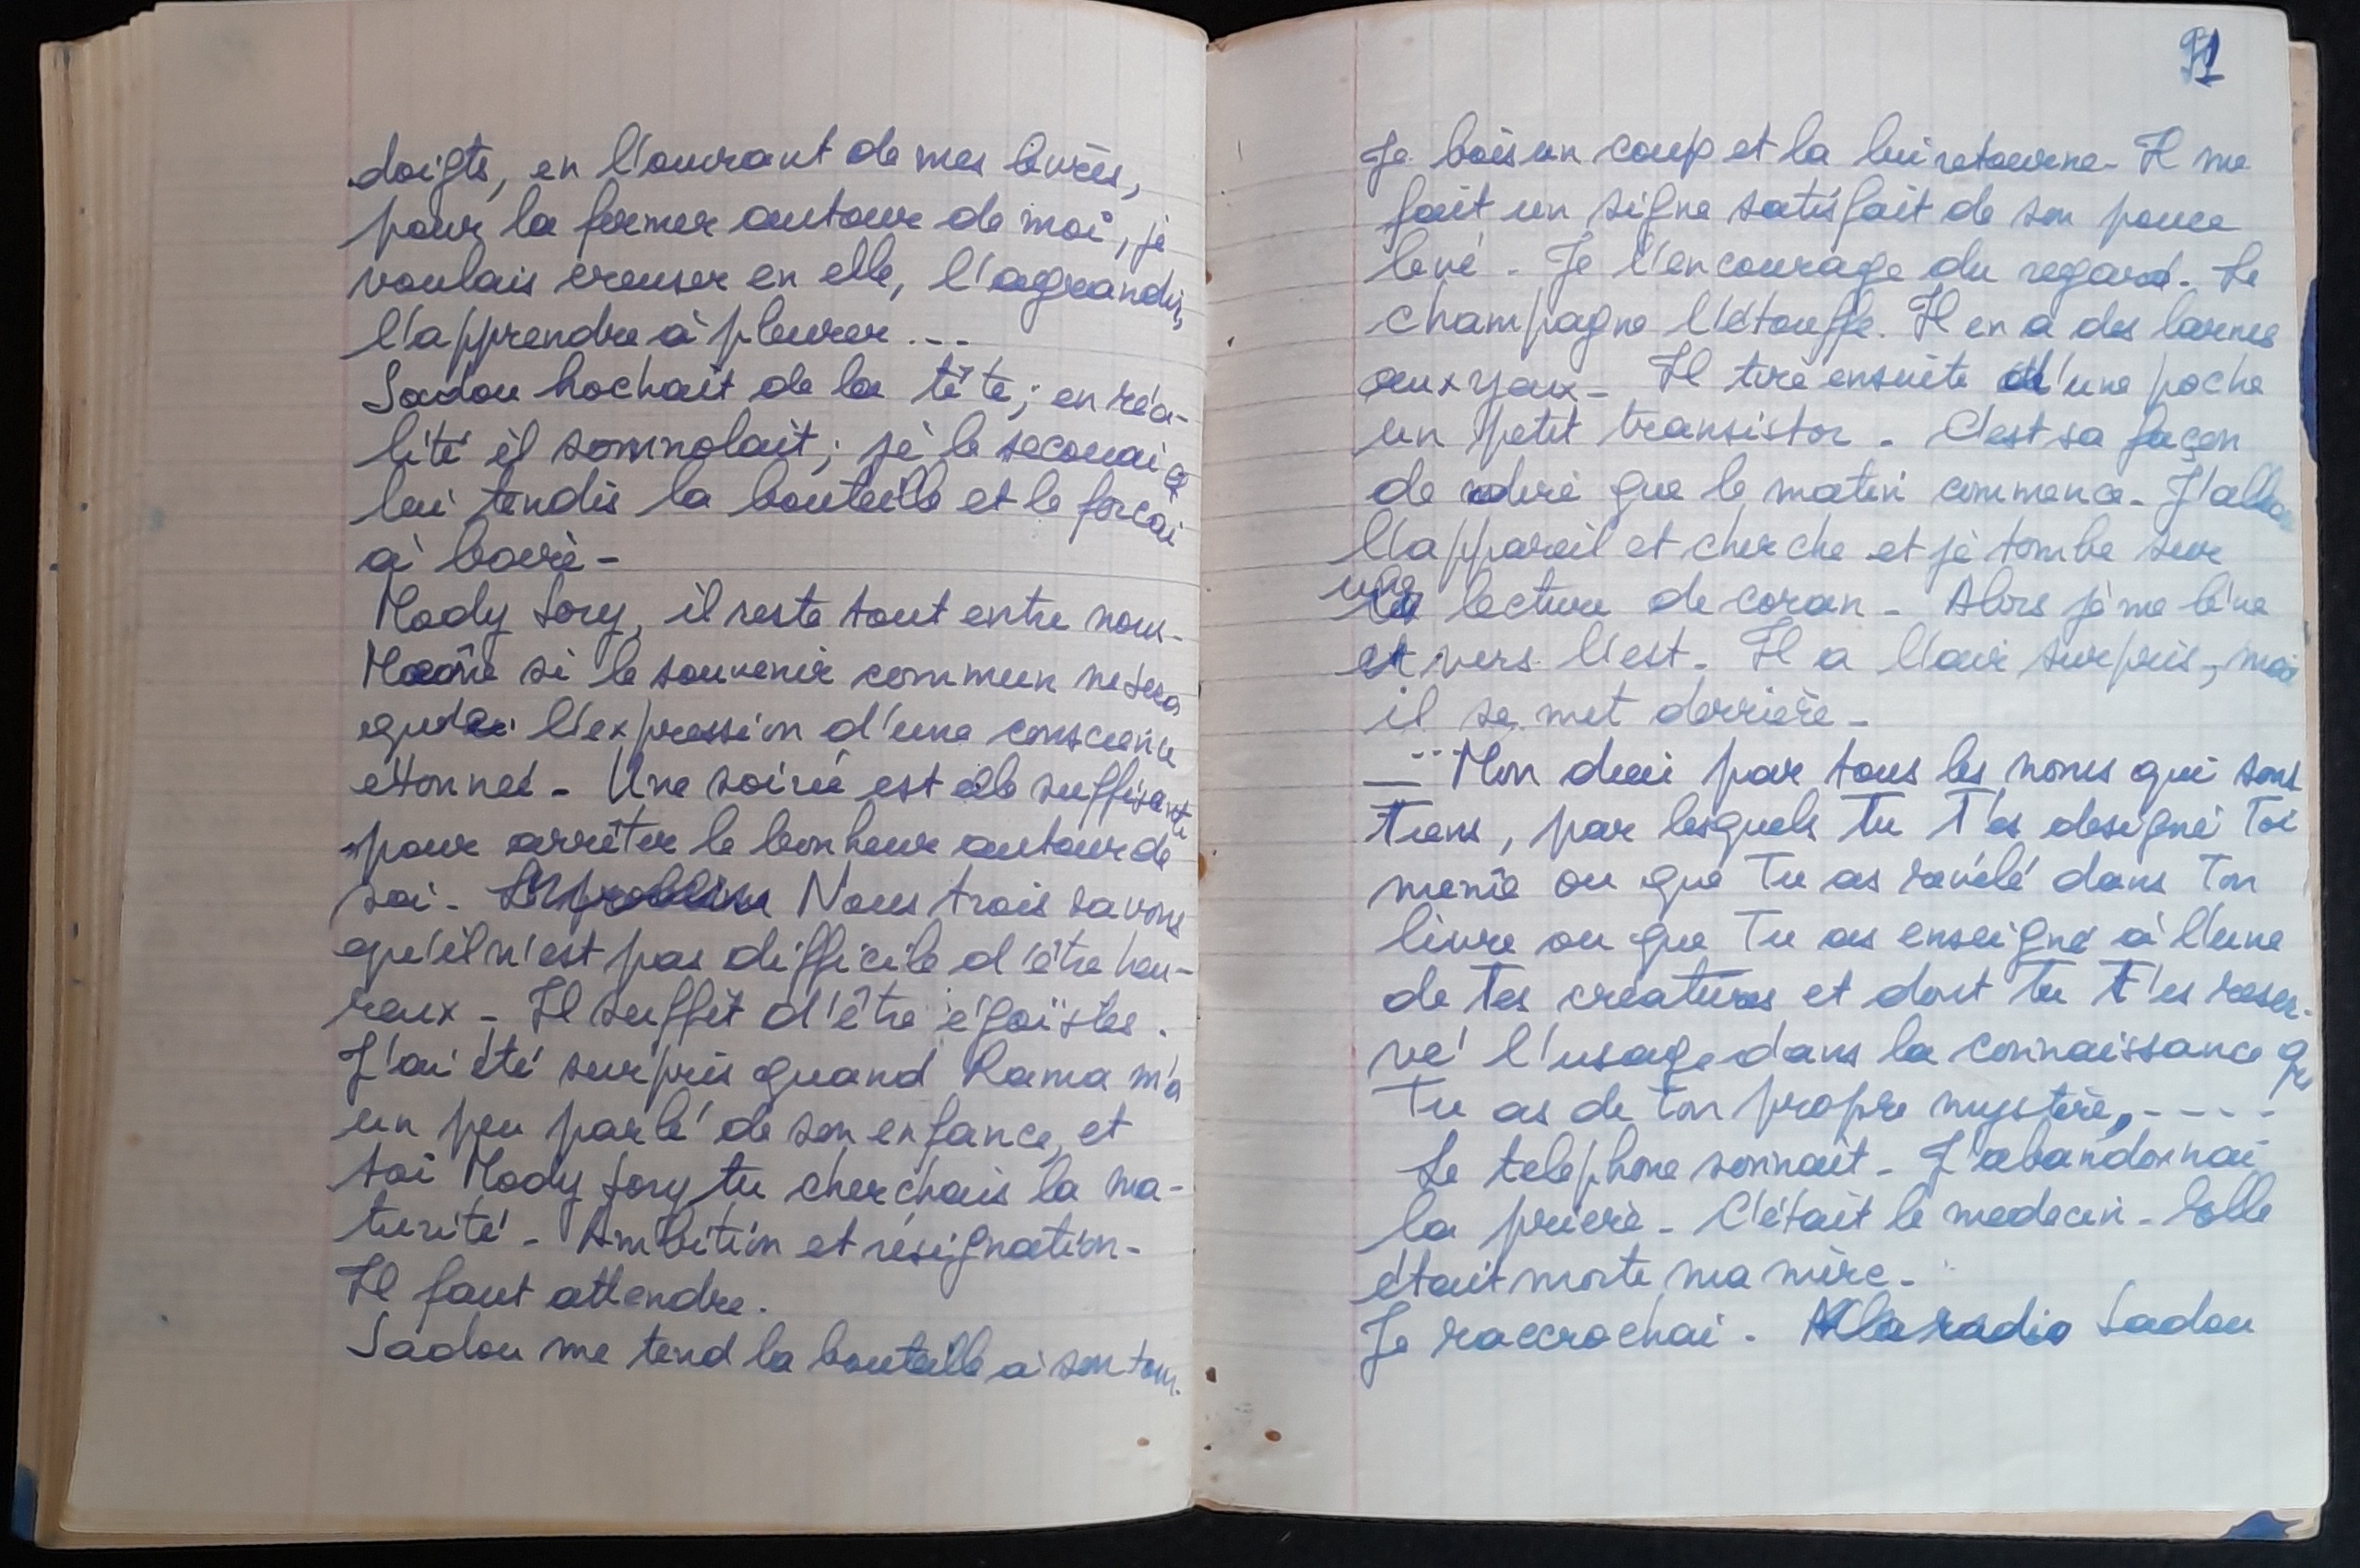 doigts, en l'ouvrant de mes lèvres,
pour la fermer autour de moi, je
voulais creuser en elle, l'agrandir,
l'apprendre à pleurer...
Sadou hochait de la tête ; en réa-
lité il somnolait ; je le secouai
lui tendis la bouteille et le forcai
à boire -
Mody Sory, il reste tout entre nous -
Même si le souvenir commun ne sera
que l'expression d'une conscience
étonnée - Une soirée est elle suffisante
pour arrêter le bonheur autour de
soi - Nous trois savons
qu'il n'est pas difficile d'être heu-
reux - Il suffit d'être égoïstes.
J'ai été surpris quand Rama m'a
un peu parlé de son enfance, et
toi Mody Sory tu cherchais la ma-
turité - Ambition et résignation -
Il faut attendre.
Sadou me tend la bouteille à son tour.
91
Je bois un coup et la lui retourne - Il me
fait un signe satisfait de son pouce
levé - Je l'encourage du regard - Le
champagne l'étouffe. Il en a des larmes
aux yeux - Il tire ensuite d'une poche
un petit transistor - C'est sa façon
de dire que le matin commence - J'allume
l'appareil et cherche et je tombe sur
une lecture de coran - Alors je me lève
et vers l'est - Il a l'air surpris, mais
il se met derrière -
- Mon dieu par tous les noms qui sont
Tiens, par lesquels Tu T'es designé Toi
meme ou que Tu as révélé dans Ton
livre ou que Tu as enseigné à l'une
de Tes créatures et dont Tu T'es reser-
vé l'usage dans la connaissance que
Tu as de Ton propre mystère, - - - -
Le telephone sonnait - J'abandonnai
la prière - C'était le medecin - Solle
était morte, ma mère -
Je raccrochai - A la radio Sadou